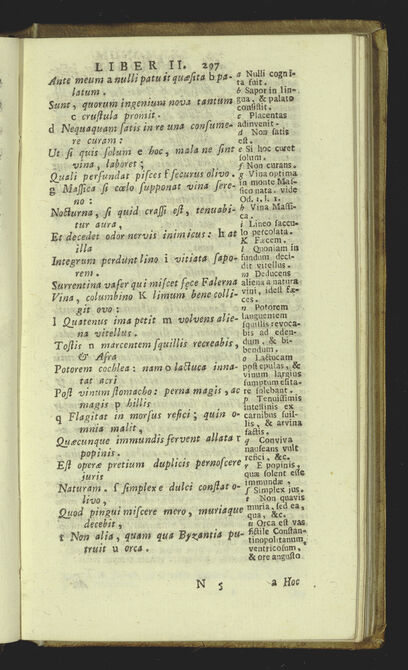 LIBER II. 297
Ante meum a nulli patuit quæsita b pa-
latum.
Sunt, quorum ingenium nova tantum
c crustula promit.
d Nequaquam satis in re una consume-
re curam:
Ut si quis solum e hoc, mala ne sint
vina, laboret;
Quali perfundat pisces f securus olivo.
g Massica si cœlo supponat vina sere-
no:
Nocturna, si quid crassi est, tenuabi-
tur aura,
Et decedet odor nervis inimicus: h at
illa
Integrum perdunt lino i vitiata sapo-
rem.
Surrentina vafer qui miscet fæce Falerna
Vina, columbino K limum bene colli-
git ovo:
l Quatenus ima petit m volvens alie-
na vitellus.
Tostis n marcentem squillis recreabis,
& Afra
Potorem cochlea: nam o lactuca inna-
tat acri
Post vinum stomacho: perna magis, ac
magis p hillis
q Flagitat in morsus refici; quin o-
mnia malit,
Quæcunque immundis fervent allata r
popinis.
Est operæ pretium duplicis pernoscere
juris
Naturam. s simplex e dulci constat o-
livo,
Quod pingui miscere mero, muriaque
decebit,
t Non alia, quam qua Byzantia pu-
truit u orca.
a Nulli cogni-
ta fuit.
b Sapor in lin-
gua, & palato
consistit.
c Placentas
adinvenit.
d Non satis
est.
e Si hoc curet
solum.
f Non curans.
g Vina optima
in monte Mas-
sico nata. vide
Od. 1. l. 1.
h Vina Massi-
ca.
i Lineo saccu-
lo percolata.
K Fæcem.
l Quoniam in
fundum deci-
dit vitellus.
m Deducens
aliena a natura
vini, idest fæ-
ces.
n Potorem
languentem
squillis revoca-
bis ad eden-
dum, & bi-
bendum.
o Lactucam
post epulas, &
vinum largius
sumptum esita-
re solebant.
p Tenuissimis
intestinis ex
carnibus suil-
lis, & arvina
factis.
q Conviva
nauseans vult
refici, &c.
r E popinis,
quæ solent esse
immundæ,
s Simplex jus.
t Non quavis
muria, sed ea,
qua, &c.
u Orca est vas
fictile Constan-
tinopolitanum,
ventricosum,
& ore angusto
N 5
a Hoc